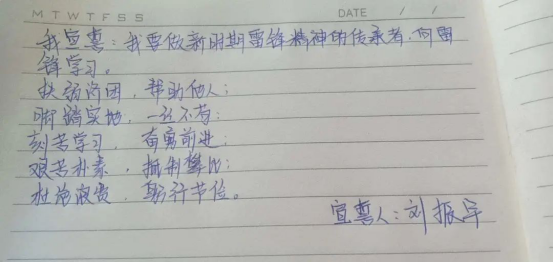 M T W T F S S
DATE / /
我宣誓：我要做新时期雷锋精神的传承者，向雷
锋学习。
扶弱济困，帮助他人；
脚踏实地，一丝不苟；
刻苦学习，奋勇前进；
艰苦朴素，抵制攀比；
杜绝浪费，躬行节俭。
宣誓人：刘振宇